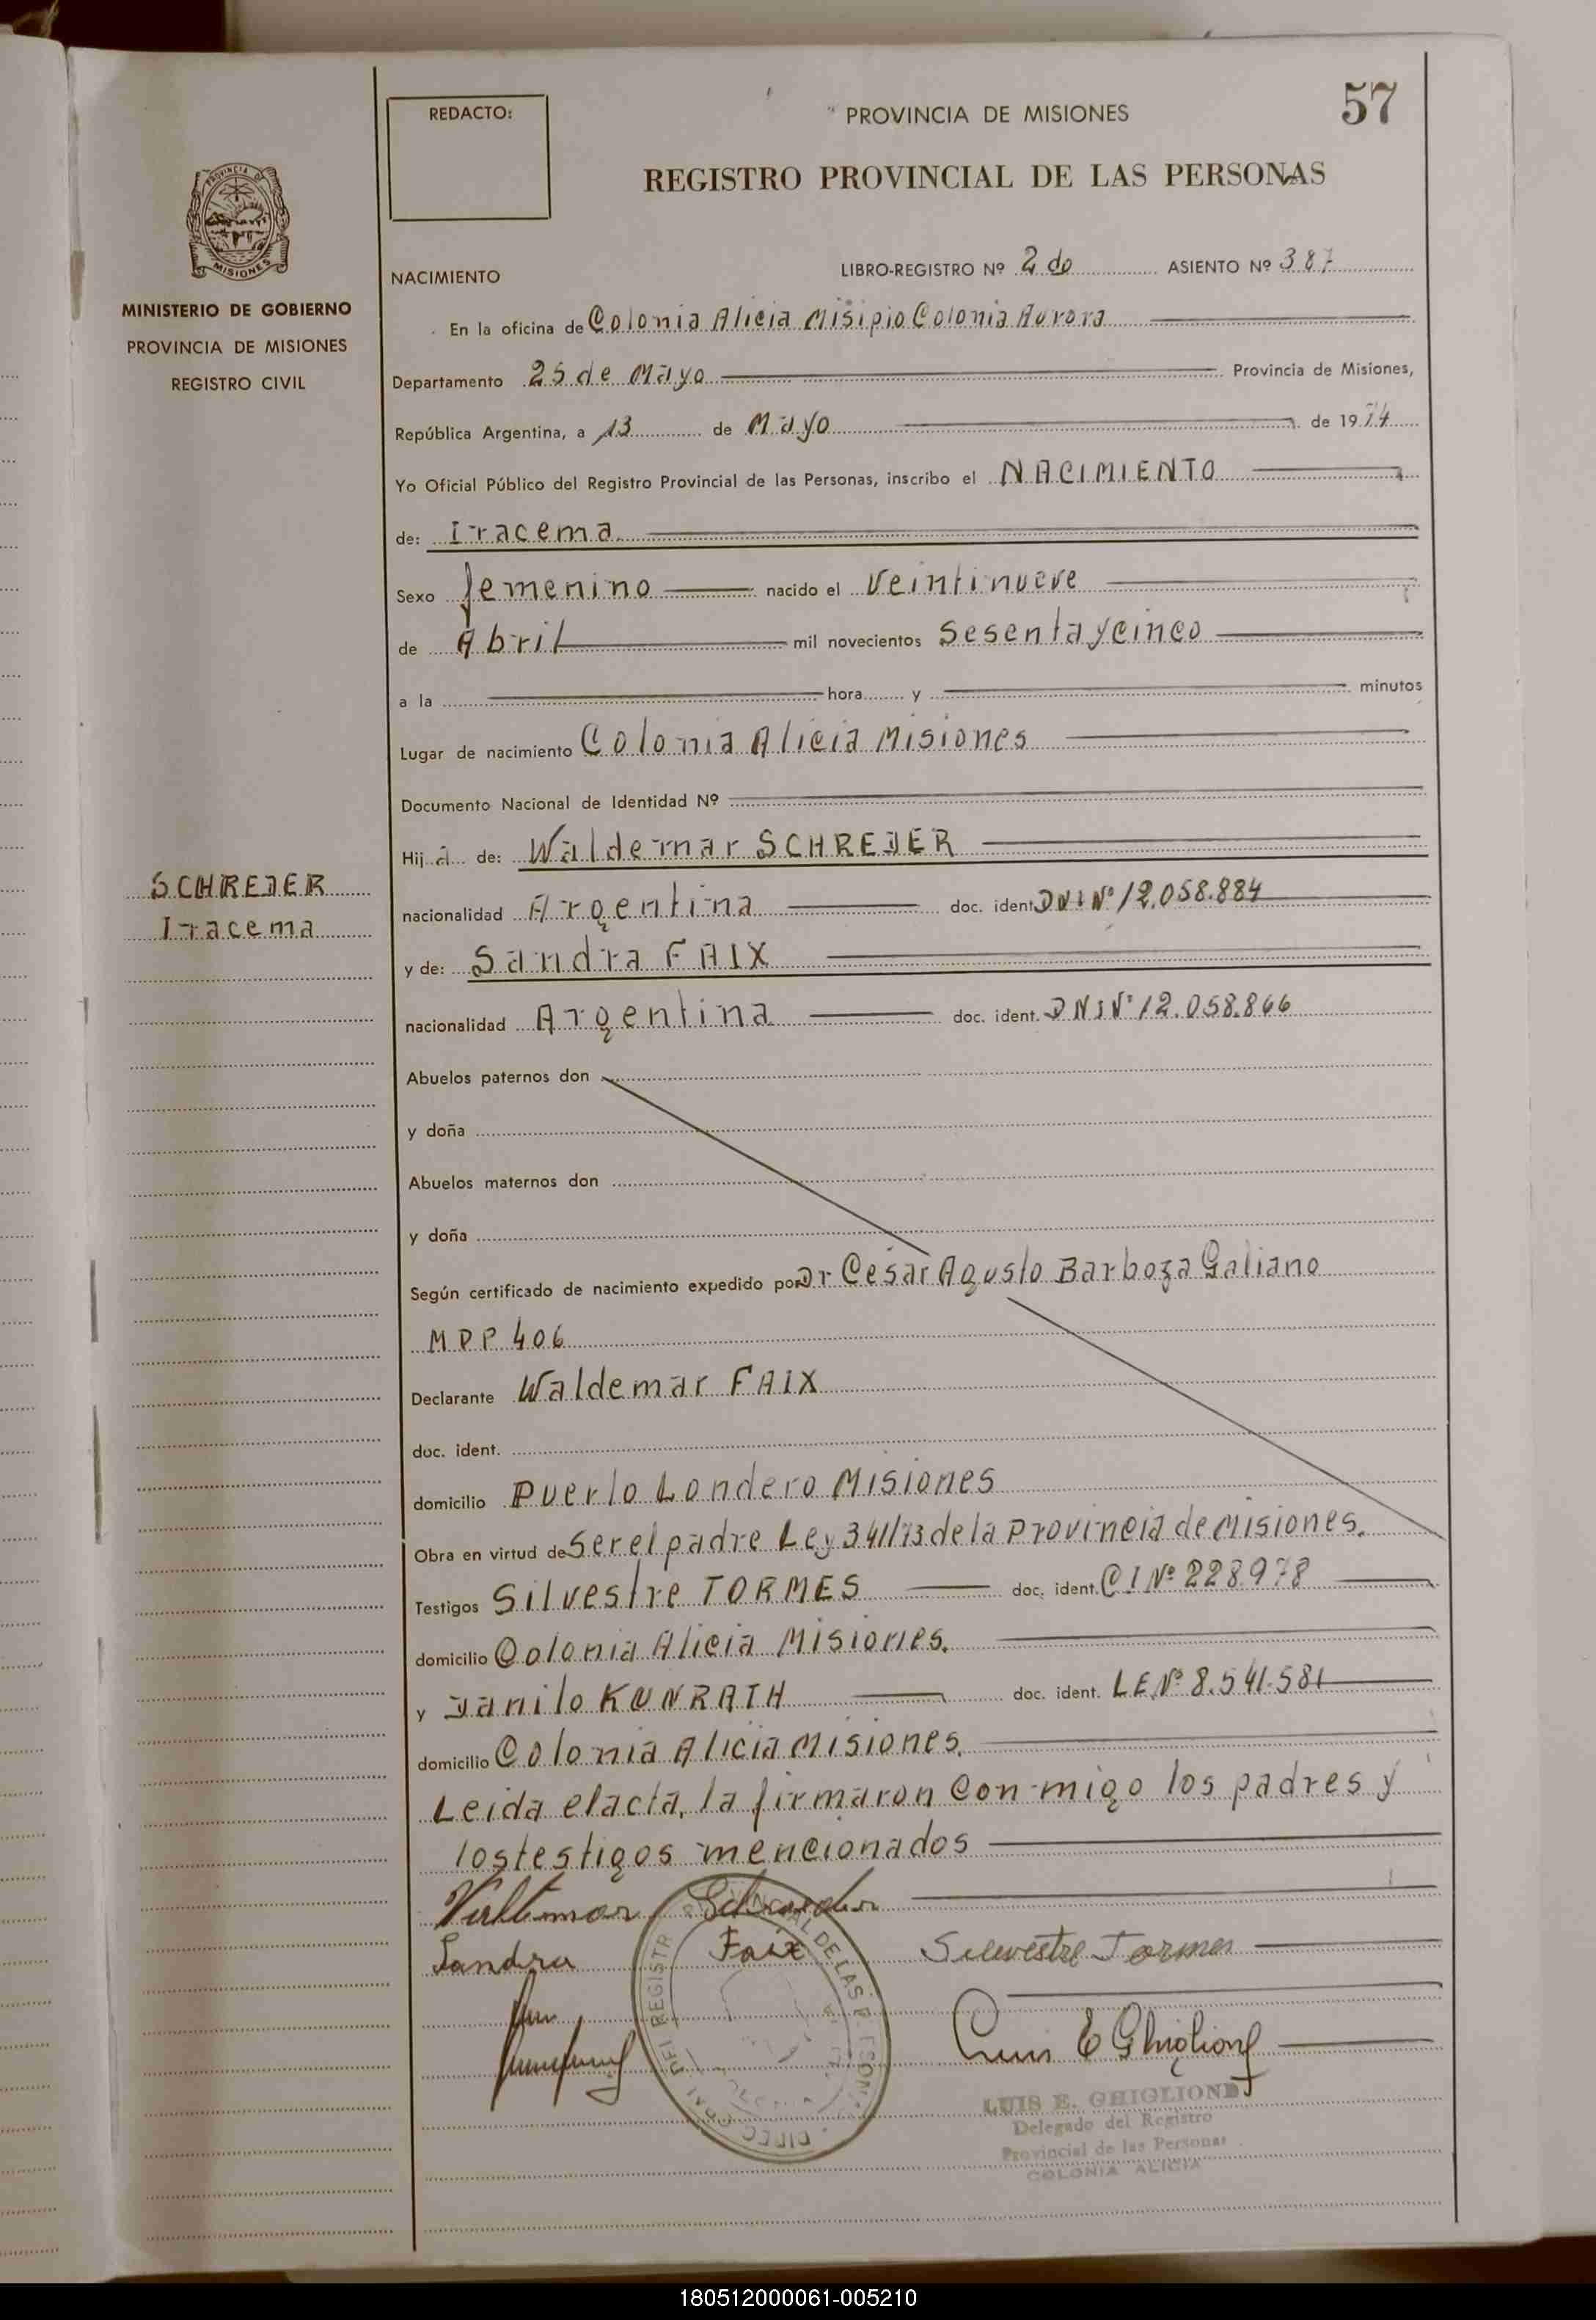 57
REDACTO:
PROVINCIA DE MISIONES
REGISTRO PROVINCIAL DE LAS PERSONAS
PROVINCIA DE
MISIONES
MINISTERIO DE GOBIERNO
PROVINCIA DE MISIONES
REGISTRO CIVIL
NACIMIENTO
LIBRO-REGISTRO Nº 2 do ASIENTO Nº 387
En la oficina de Colonia Alicia Misipio Colonia Aurora
Departamento 25 de Mayo Provincia de Misiones,
República Argentina, a 13 de Mayo de 1974
Yo Oficial Público del Registro Provincial de las Personas, inscribo el NACIMIENTO
de: Iracema
Sexo femenino nacido el Veintinueve
de Abril mil novecientos Sesentaycinco
a la hora y minutos
Lugar de nacimiento Colonia Alicia Misiones
Documento Nacional de Identidad Nº
Hij a de: Waldemar SCHREDER
SCHREDER
Iracema
nacionalidad Argentina doc. ident DNI Nº 12.058.884
y de: Sandra FAIX
nacionalidad Argentina doc. ident. DNI Nº 12.058.866
Abuelos paternos don
y doña
Abuelos maternos don
y doña
Según certificado de nacimiento expedido por Dr César Agusto Barboza Galiano
MPP 406
Declarante Waldemar FAIX
doc. ident.
domicilio Puerto Londero Misiones
Obra en virtud de Ser el padre Ley 341/73 de la Provincia de Misiones.
Testigos Silvestre TORMES doc. ident. CI Nº 228.978
domicilio Colonia Alicia Misiones.
y Danilo KUNRATH doc. ident. LE Nº 8.541.581
domicilio Colonia Alicia Misiones.
Leida el acta, la firmaron Conmigo los padres y
los testigos mencionados
Sandra Faix Silvestre Tormes
Luis E Ghiglione
LUIS E. GHIGLIONE
Delegado del Registro
Provincial de las Personas
COLONIA ALICIA
180512000061-005210